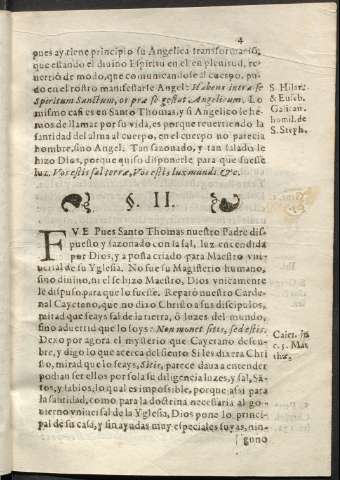 4
pues ay tiene principio su Angelica transformació;
que estando el divino Espiritu en el en plenitud, re-
vertió de modo, que comunicandose al cuerpo, pu-
do en el rostro manifestarle Angel: Habens intra se
Spiritum Sanctum, os præ se gestat Angelicum. Lo
mismo casi es en Santo Thomas, y si Angelico le he-
mos de llamar por su vida, es porque revertiendo la
santidad del alma al cuerpo, en el cuerpo no parecia
hombre, sino Angel. Tan sazonado, y tan salado le
hizo Dios, porque quiso disponerle para que fuesse
luz. Vos estis sal terræ, Vos estis lux mundi. &c.
S. Hilar.
& Euseb.
Galican.
homil. de
S. Steph.
§. II.
FVE Pues Santo Thomas nuestro Padre dis-
puesto y sazonado con la sal, luz encendida
por Dios, y a posta criado para Maestro vni-
uersal de su Yglesia. No fue su Magisterio humano,
sino diuino, ni el se hizo Maestro, Dios vnicamente
le dispuso para que lo fuesse. Reparò nuestro Carde-
nal Cayetano, que no dixo Christo a sus discipulos,
mirad que seays sal de la tierra, ò luzes del mundo,
sino aduertid que lo soys: Non monet sitis, sed estis.
Dexo por agora el mysterio que Cayetano descu-
bre, y digo lo que acerca del siento Si les dixera Chri-
sto, mirad que lo seays, Sitis, parece daua a entender
podian ser ellos por sola su diligencia luzes, y sal, Sã-
tos, y sabios, lo qual es impossible, porque assi para
la santidad, como para la doctrina necessaria al go-
uierno vniuersal de la Yglesia, Dios pone lo princi-
pal de su casa, y sin ayudas muy especiales suyas, nin-
guno
Caiet. in
c. 5. Mat
thæ.